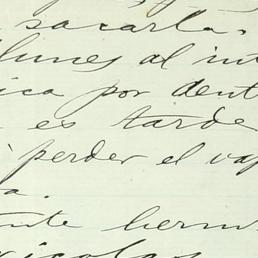 sacarla.
lunes al int
ica por dent
es tarde
perder el vap
a.
nte herm
icolas